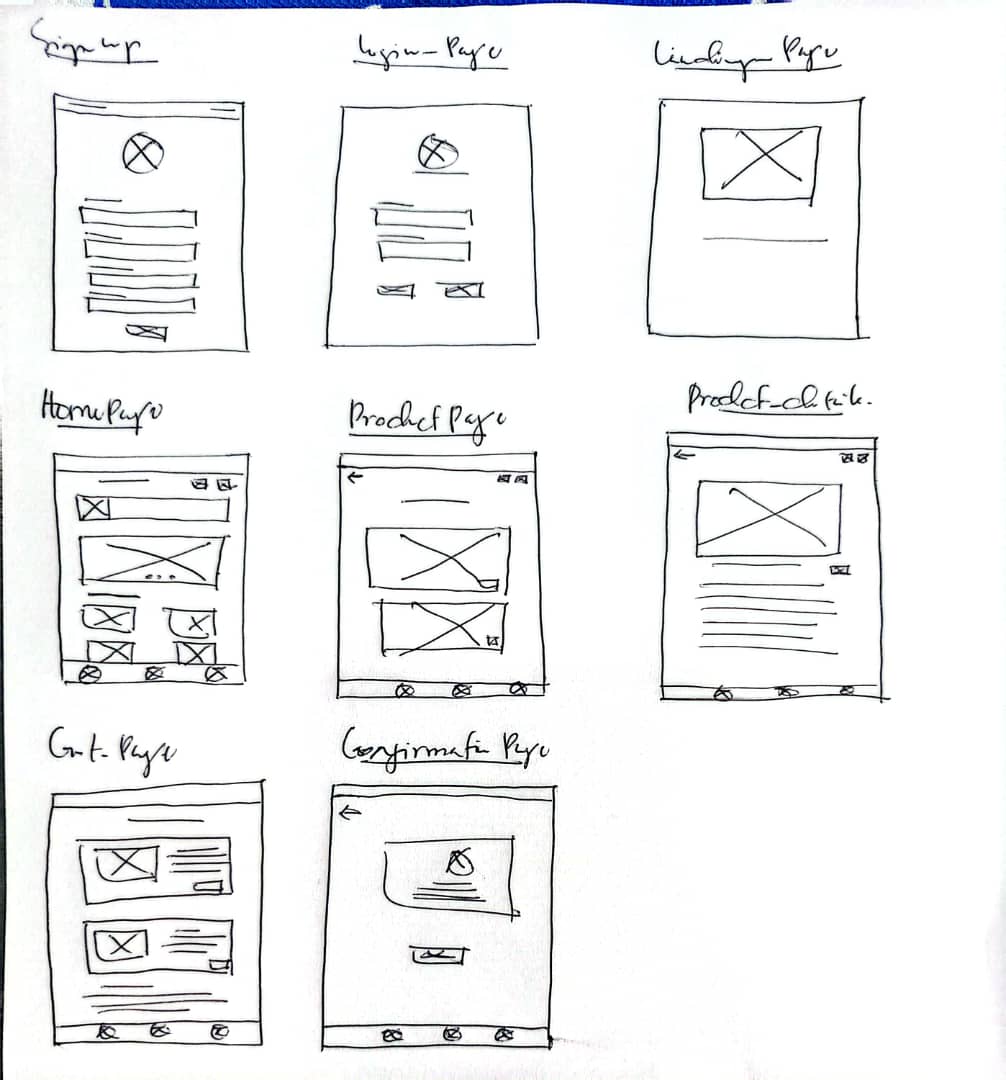 Sign up
Login-Page
Landing-Page
HomePage
Product Page
Product-details.
Cart-Page
Confirmation Page